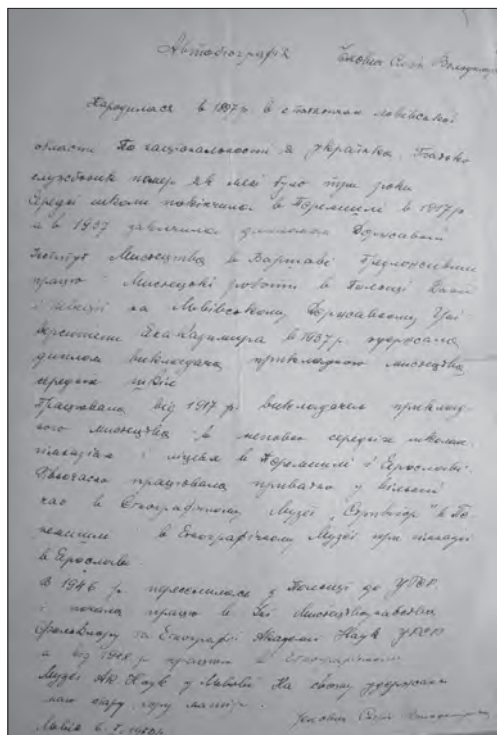 Автобіографія
Народилася в 1897 р. в
області По національности я українка. Батько
службовик помер як мені було три роки
Середні школи покінчила в Перемишлі в 1917 р
а в 1937 закінчила Державний
Інститут Мистецтва в Варшаві
працю і Мистецькі роботи в
на Львівському Державному Уні
верситеті Яна Казимира в 1937 р. одержала
диплом викладача прикладного мистецтва
середніх шкіл
Працювала від 1917 р. викладачем приклад
ного мистецтва в неповно середніх школах
гімназіях і ліцеях в Перемишлі і Ярославі.
працювала приватно у вільний
час в Етнографічному Музеї „Стривігор" в Пе
ремишлі в Етнографічному Музеї при гімназії
в Ярославі.
В 1946 р. переселилася з Польщі до УРСР.
і почала працю в Мистецтвознавства
Фольклору та Етнографії Академії Наук УРСР
а від р працюю в Етнографічнім
Музеї Ак Наук у Львові На своїм удержанні
маю стару хору матір.
Львів